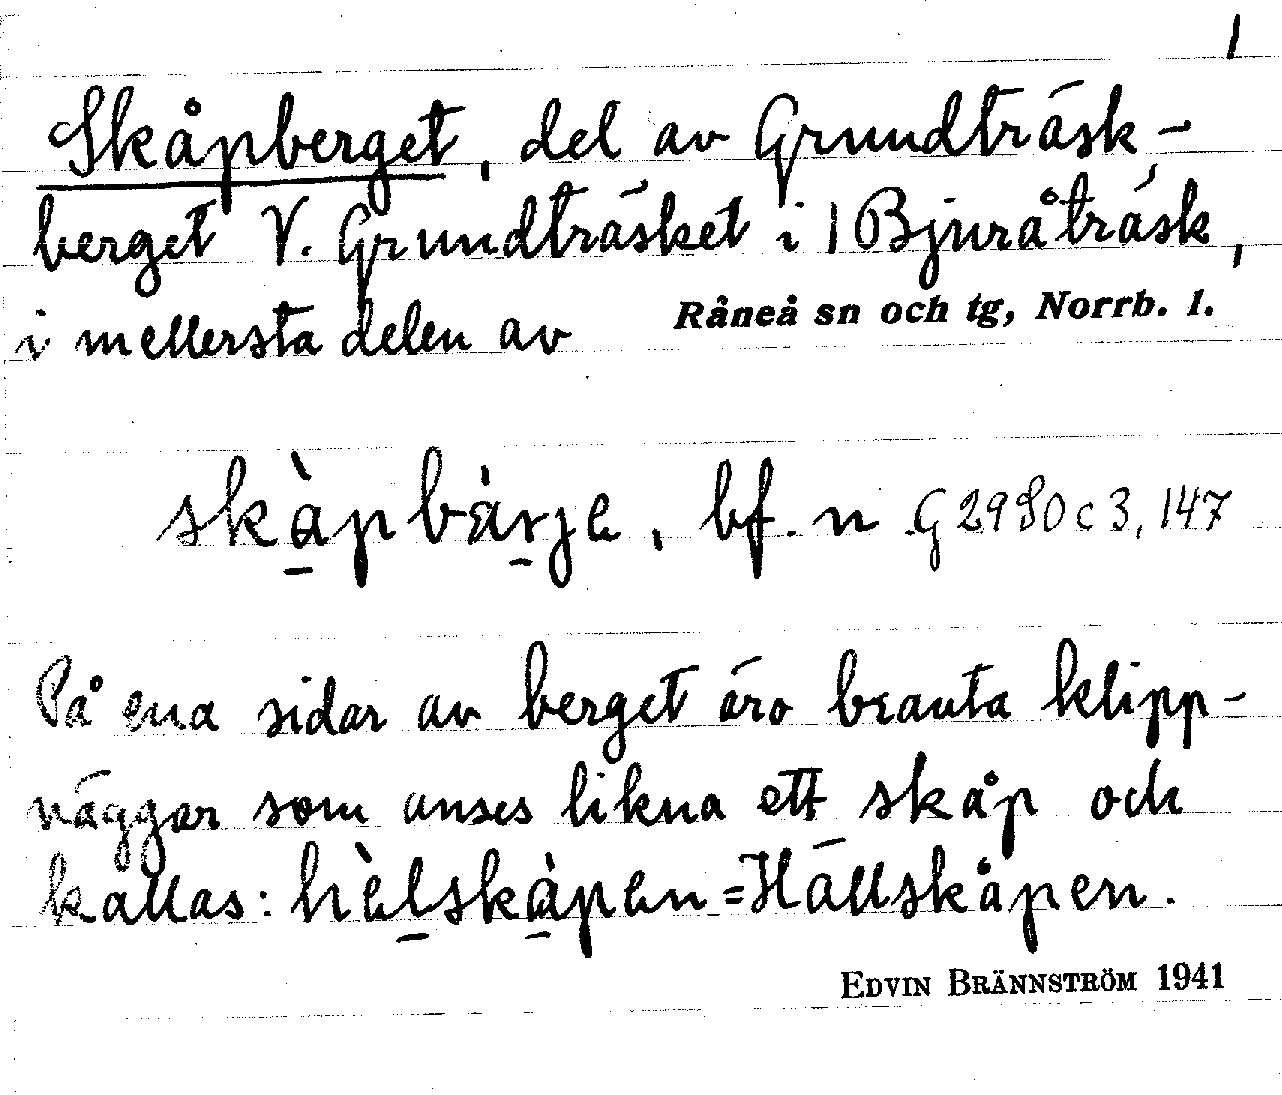 1
Skåpberget, del av Grundträsk-
berget V. Grundträsket i 1 Bjuråträsk,
i mellersta delen av Råneå sn och tg, Norrb. l.
skàpbàrje, bf. n G 2980 c 3, 147
På ena sidar av berget äro branta klipp-
väggar som anses likna ett skåp och
kallas: hèlskàpen = Hällskåpen.
EDVIN BRÄNNSTRÖM 1941